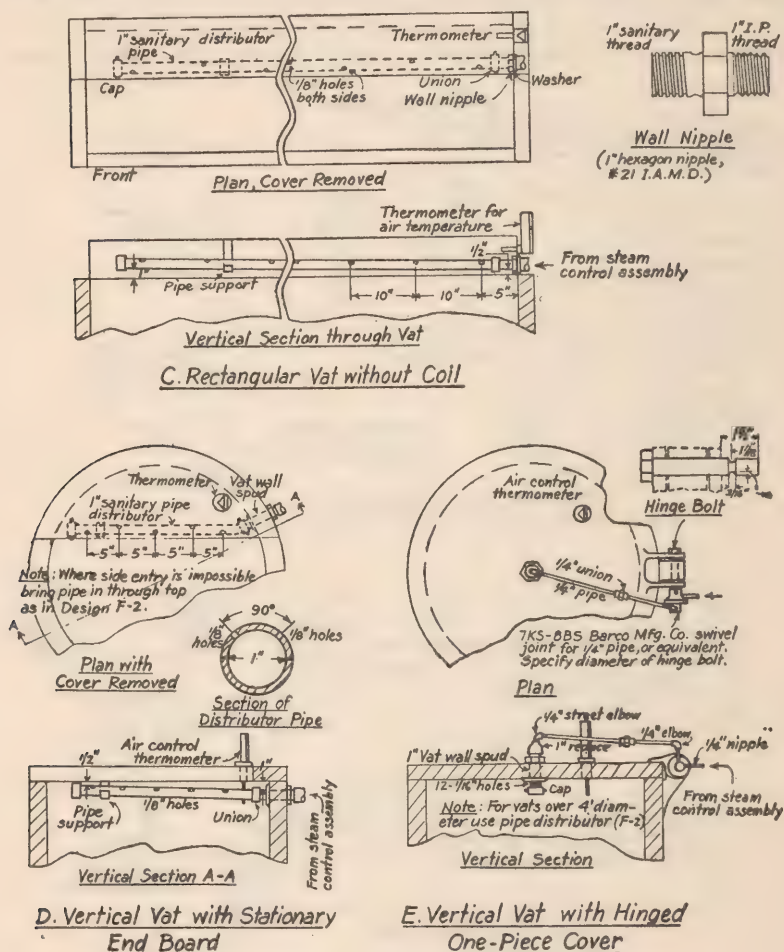 1" sanitary distributor
pipe
Thermometer
Cap
1/8" holes
both sides
Union
Wall nipple
Washer
Front
Plan, Cover Removed
1" sanitary
thread
1" I.P.
thread
Wall Nipple
(1" hexagon nipple,
#21 I.A.M.D.)
Thermometer for
air temperature
1/2"
1"
Pipe support
10"
10"
5"
From steam
control assembly
Vertical Section through Vat
C. Rectangular Vat without Coil
Thermometer
Vat wall
spud
A
1" sanitary pipe
distributor
5"
5"
5"
5"
Note: Where side entry is impossible
bring pipe in through top
as in Design F-2.
A
Plan with
Cover Removed
90°
1/8"
holes
1/8" holes
1"
Section of
Distributor Pipe
Air control
thermometer
1/2"
1"
Pipe
support
1/8" holes
Union
From steam
control assembly
Vertical Section A-A
D. Vertical Vat with Stationary
End Board
Air control
thermometer
Hinge Bolt
1/4" union
1/4" pipe
7KS-8BS Barco Mfg. Co. swivel
joint for 1/4" pipe, or equivalent.
Specify diameter of hinge bolt.
Plan
1/4" street elbow
1" reduce
1/4" elbow
1/4" nipple
1" Vat wall spud
12-1/16" holes
Cap
Note: For vats over 4' diam-
eter use pipe distributor (F-2)
From steam
control assembly
Vertical Section
E. Vertical Vat with Hinged
One-Piece Cover